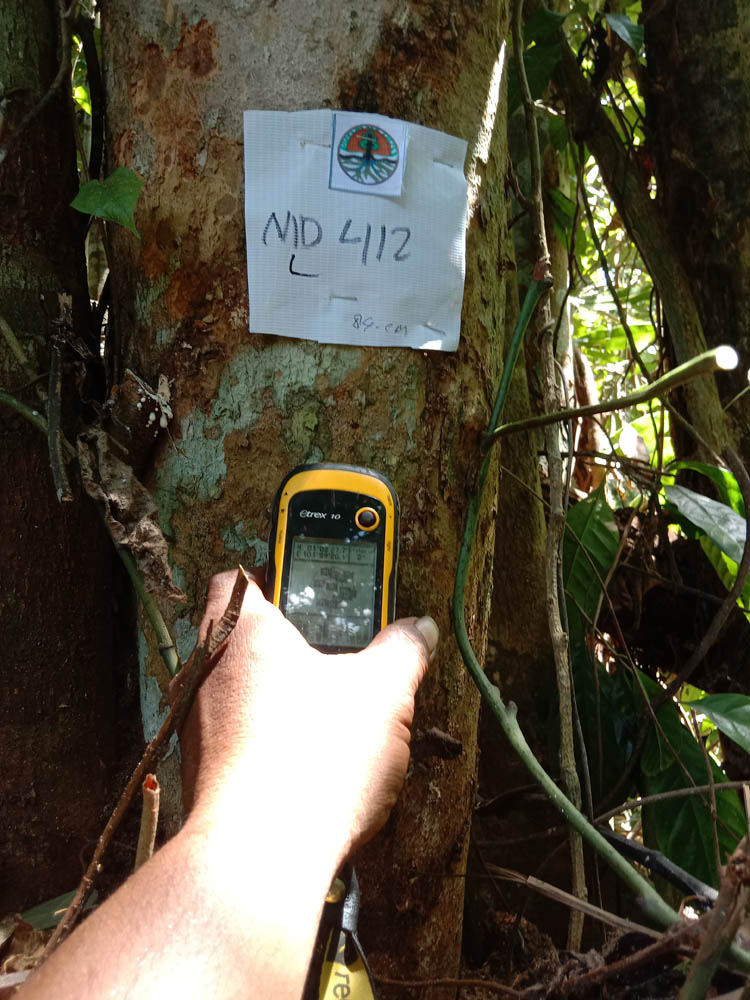 MD 412
L
84 cm
etrex 10
re